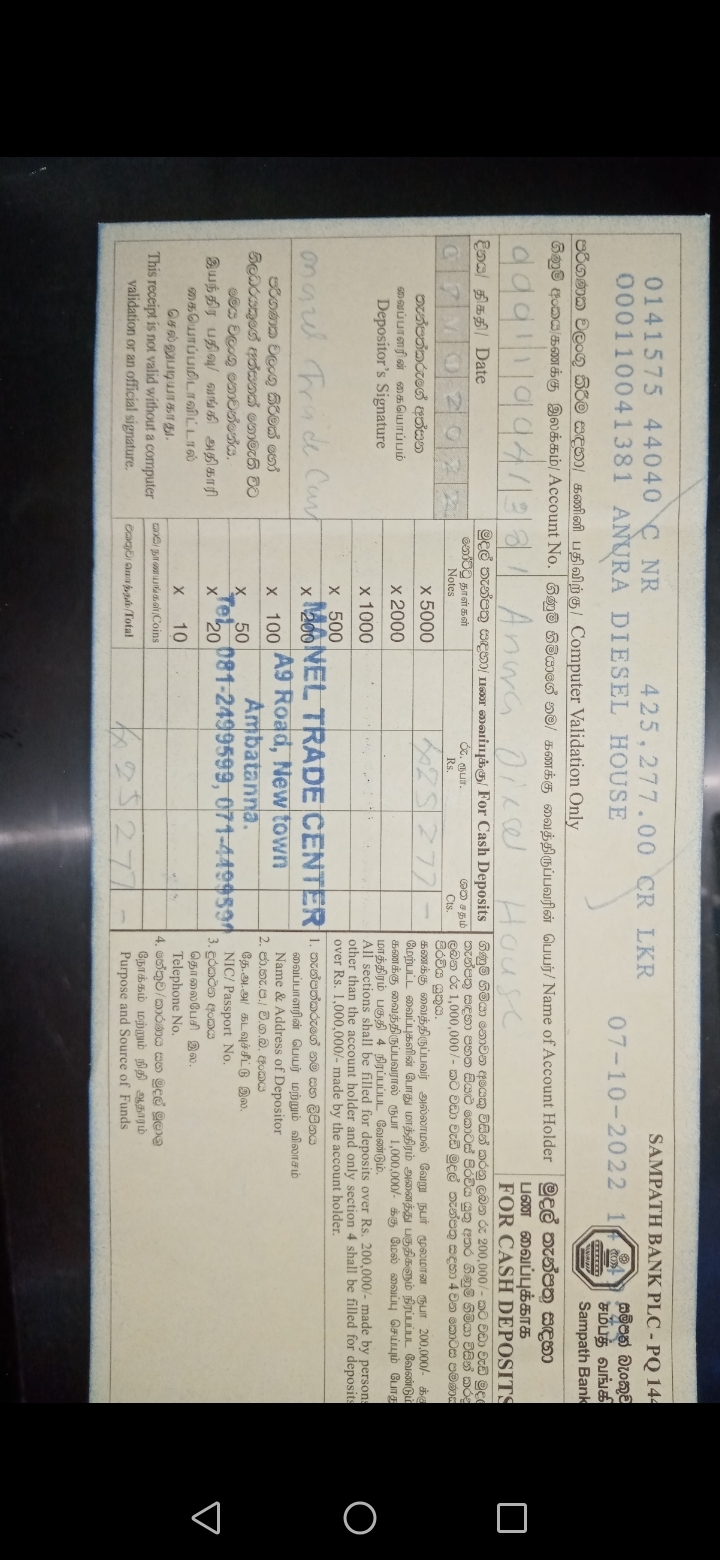 SAMPATH BANK PLC - PQ 144
0141575 44040 C NR 425,277.00 CR LKR 07-10-2022
000110041381 ANURA DIESEL HOUSE
සම්පත් බැංකුව
சம்பத் வங்கி
Sampath Bank
පරිගණක වලංගු කිරීම සඳහා/ கணினி பதிவிற்கு/ Computer Validation Only
මුදල් තැන්පතු සඳහා
பண வைப்புக்காக
FOR CASH DEPOSITS
ගිණුම් අංකය/கணக்கு இலக்கம்/ Account No.
ගිණුම් හිමියාගේ නම/ கணக்கு வைத்திருப்பவரின் பெயர்/ Name of Account Holder
000110041381
Anura Disel House
දිනය/ திகதி/ Date
07102022
තැන්පත්කරුගේ අත්සන
வைப்பாளரின் கையொப்பம்
Depositor's Signature
පරිගණක වලංගු කිරීමක් හෝ
නිලධාරියාගේ අත්සනක් නොමැති විට
මෙය වලංගු නොවන්නේය.
இயந்திர பதிவு/ வங்கி அதிகாரி
கையொப்பமிடாவிட்டால்
செல்லுபடியாகாது.
This receipt is not valid without a computer
validation or an official signature.
මුදල් තැන්පතු සඳහා/ பண வைப்புக்கு/ For Cash Deposits
නෝට්ටු/தாள்கள்
Notes
රු. ரூபா.
Rs.
ශත சதம்
Cts.
x 5000 425277 -
x 2000
x 1000
x 500
x 200
x 100
x 50
x 20
x 10
කාසි/நாணயங்கள்/Coins
එකතුව/மொத்தம்/Total 425277 -
MANEL TRADE CENTER
A9 Road, New town
Ambatanna.
Tel, 081-2499599, 071-4499599
ගිණුම් හිමියා නොවන අයෙකු විසින් කරනු ලබන රු 200,000/- කට වඩා වැඩි මුදල්
තැන්පතු සඳහා පහත සියළු කොටස් පිරවිය යුතු අතර ගිණුම් හිමියා විසින් කරනු
ලබන රු 1,000,000/- කට වඩා වැඩි මුදල් තැන්පතු සඳහා 4 වන කොටස පමණක්
පිරවිය යුතුය.
கணக்கு வைத்திருப்பவர் அல்லாமல் வேறு நபர் மூலமான ரூபா 200,000/- க்கு
மேற்பட்ட வைப்புகளின் போது மாத்திரம் அனைத்து பகுதிகளும் நிரப்பப்பட வேண்டும்.
கணக்கு வைத்திருப்பவரால் ரூபா 1,000,000/- க்கு மேல் வைப்பு செய்யும் போது
மாத்திரம் பகுதி 4 நிரப்பப்பட வேண்டும்.
All sections shall be filled for deposits over Rs. 200,000/- made by persons
other than the account holder and only section 4 shall be filled for deposits
over Rs. 1,000,000/- made by the account holder.
1. තැන්පත්කරුගේ නම සහ ලිපිනය
வைப்பாளரின் பெயர் மற்றும் விலாசம்
Name & Address of Depositor
2. ජා.හැ.ප./ වි.ග.බ. අංකය
தே.அ.அ/ கடவுச்சீட்டு இல.
NIC/ Passport No.
3. දුරකථන අංකය
தொலைபேசி இல.
Telephone No.
4. හේතුව/කාරණය සහ මුදල් මූලාශ්‍ර
நோக்கம் மற்றும் நிதி ஆதாரம்
Purpose and Source of Funds